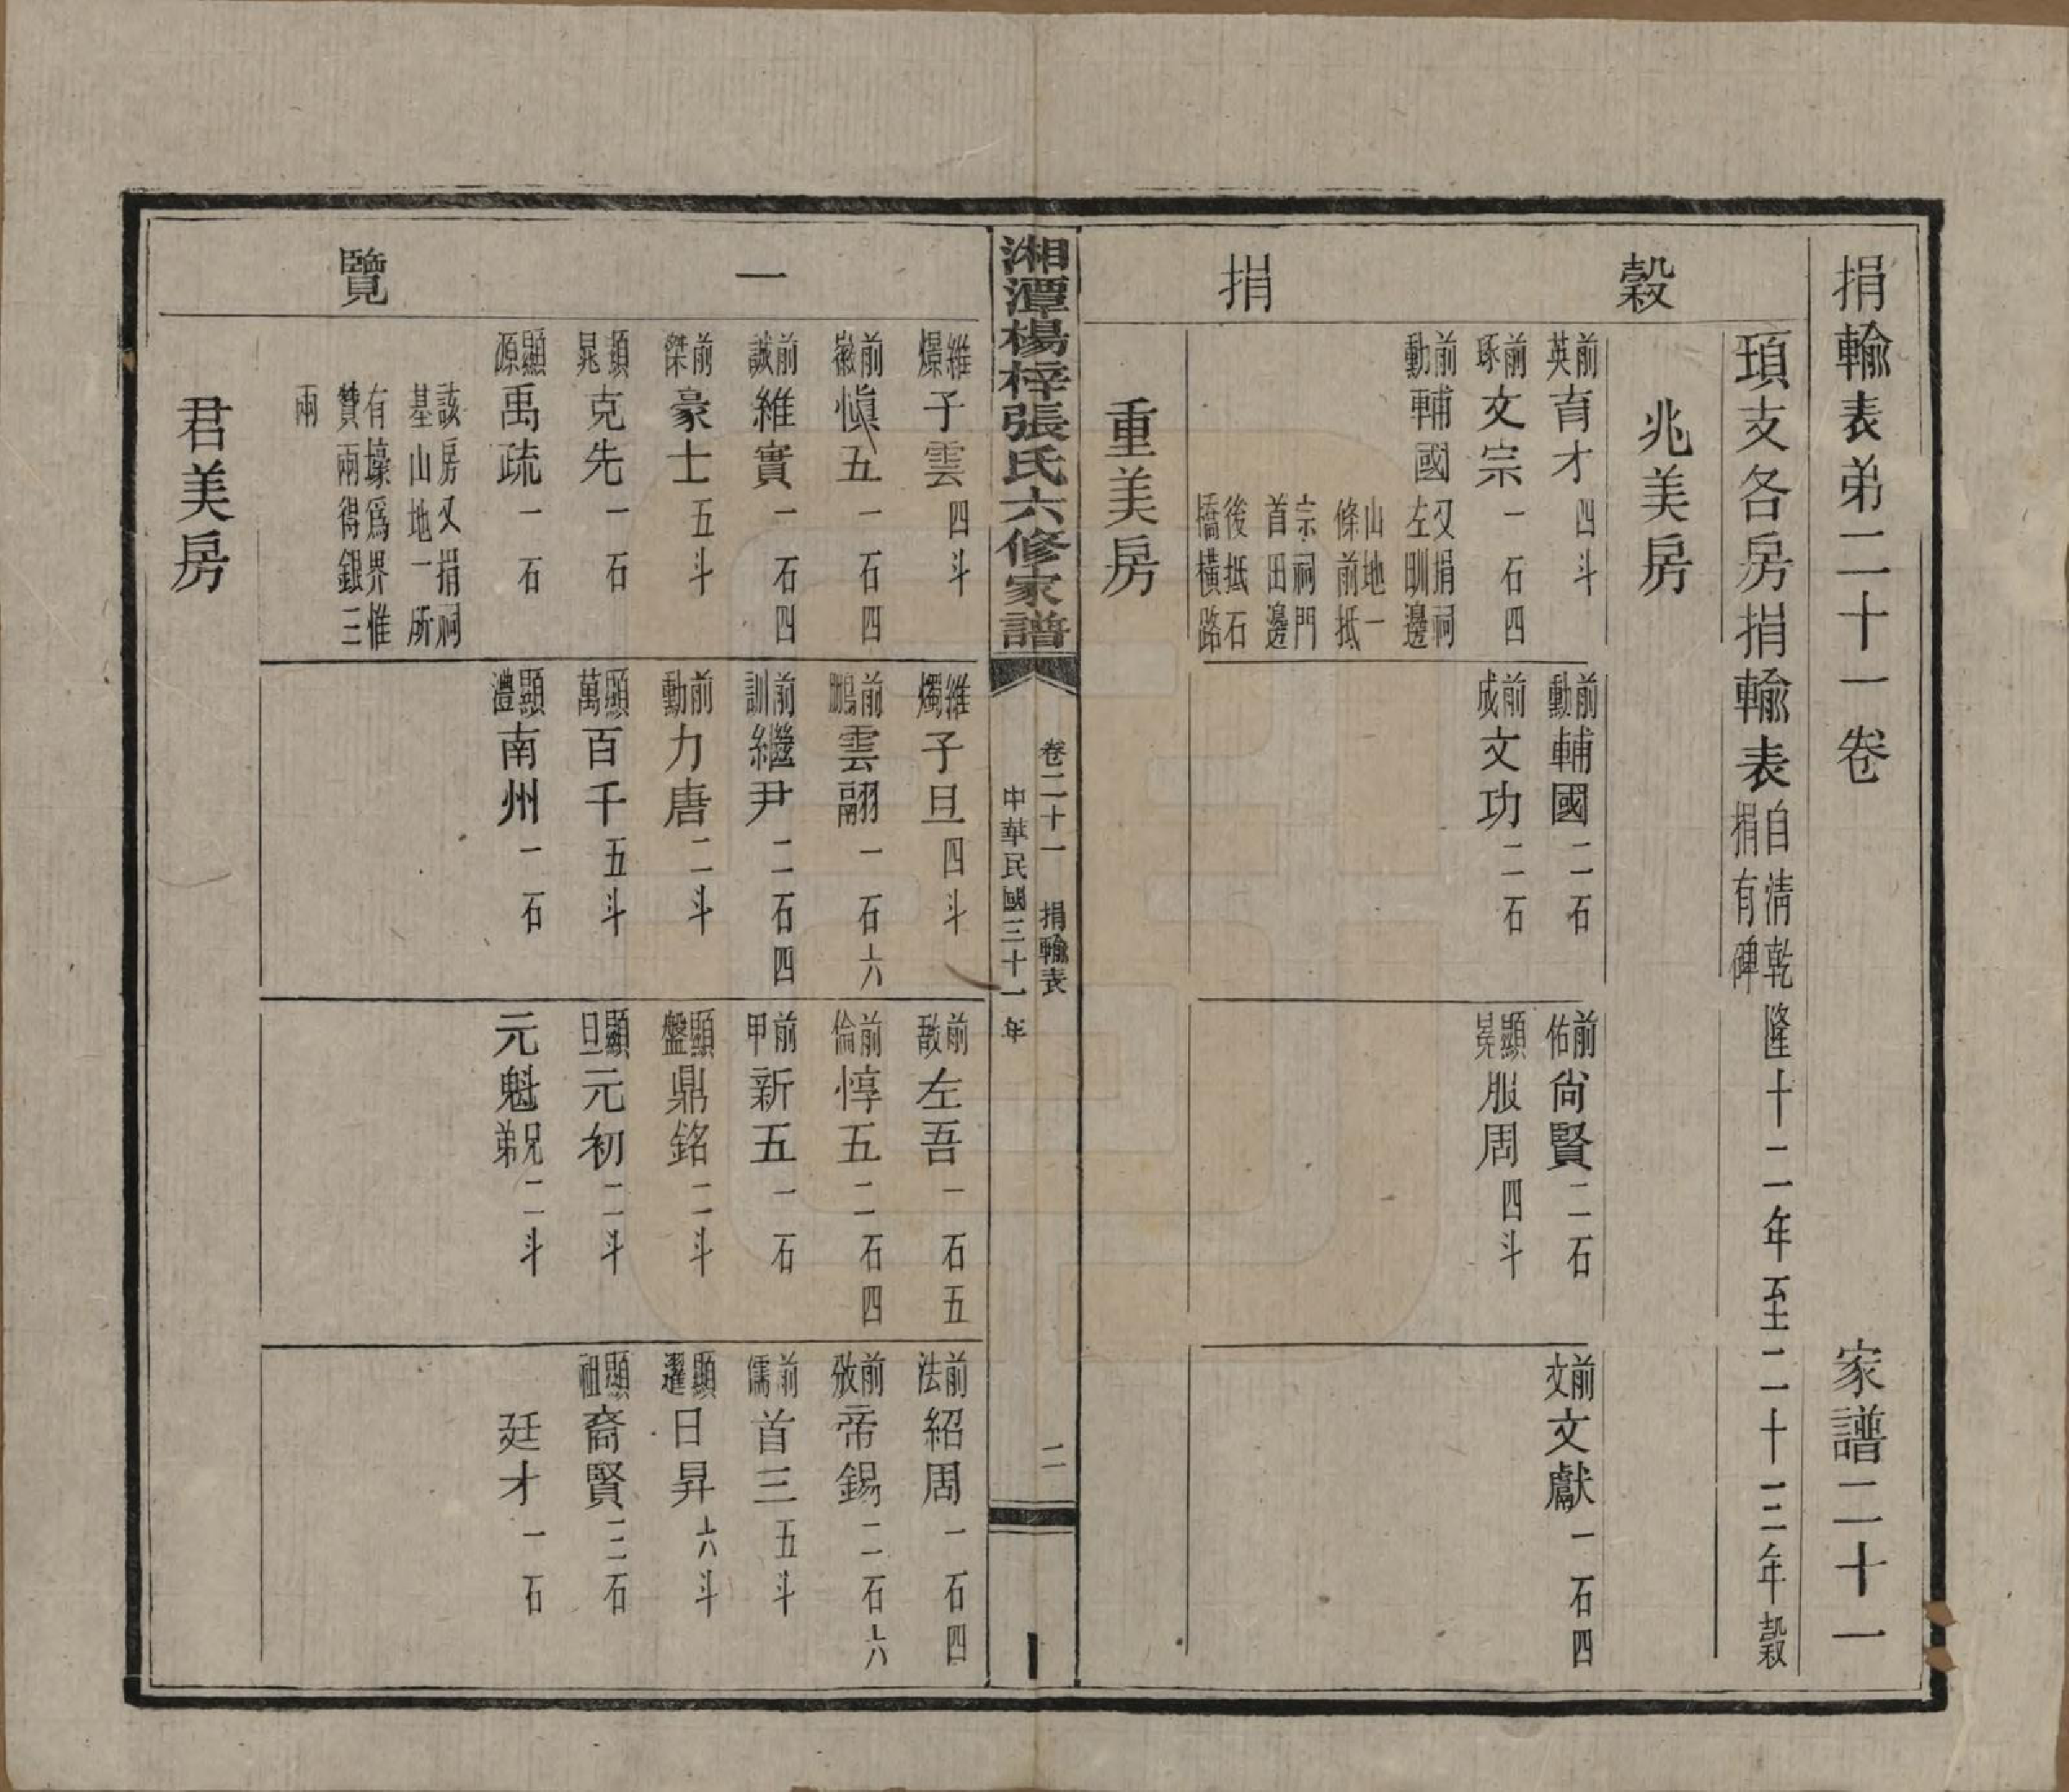 捐輸表弟二十一卷
家譜二十一
頊支各房捐輸表
自清乾隆十二年至二十三年穀
捐有碑
穀
捐
兆美房
前英育才四斗
前琢文宗一石四
前動輔國
又捐祠
左圳邊
山地一
條前抵
宗祠門
首田邊
後抵石
橋橫路
前勳輔國二石
前成文功二石
前佑尙賢二石
顯㫤服周四斗
前文文獻一石四
重美房
湘潭楊梓張氏六修家譜
卷二十一
捐輸表
中華民國三十一年
二
一
覽
維燝子雲四斗
前徽愼五一石四
前誠維實一石四
前傑豪士五斗
顯晁克先一石
顯源禹疏一石
該房又捐祠
基山地一所
有壕爲界惟
贊兩得銀三
兩
維燭子旦四斗
前鵬雲翮一石六
前訓繼尹二石四
前勳力唐二斗
顯萬百千五斗
顯澧南州一石
前敔左吾一石五
前倫惇五二石四
前甲新五一石
顯盤鼎銘二斗
顯旦元初二斗
元魁兄弟二斗
前法紹周一石四
前攽帝錫二石六
前儒首三五斗
顯邏日昇六斗
顯祖裔賢三石
廷才一石
君美房